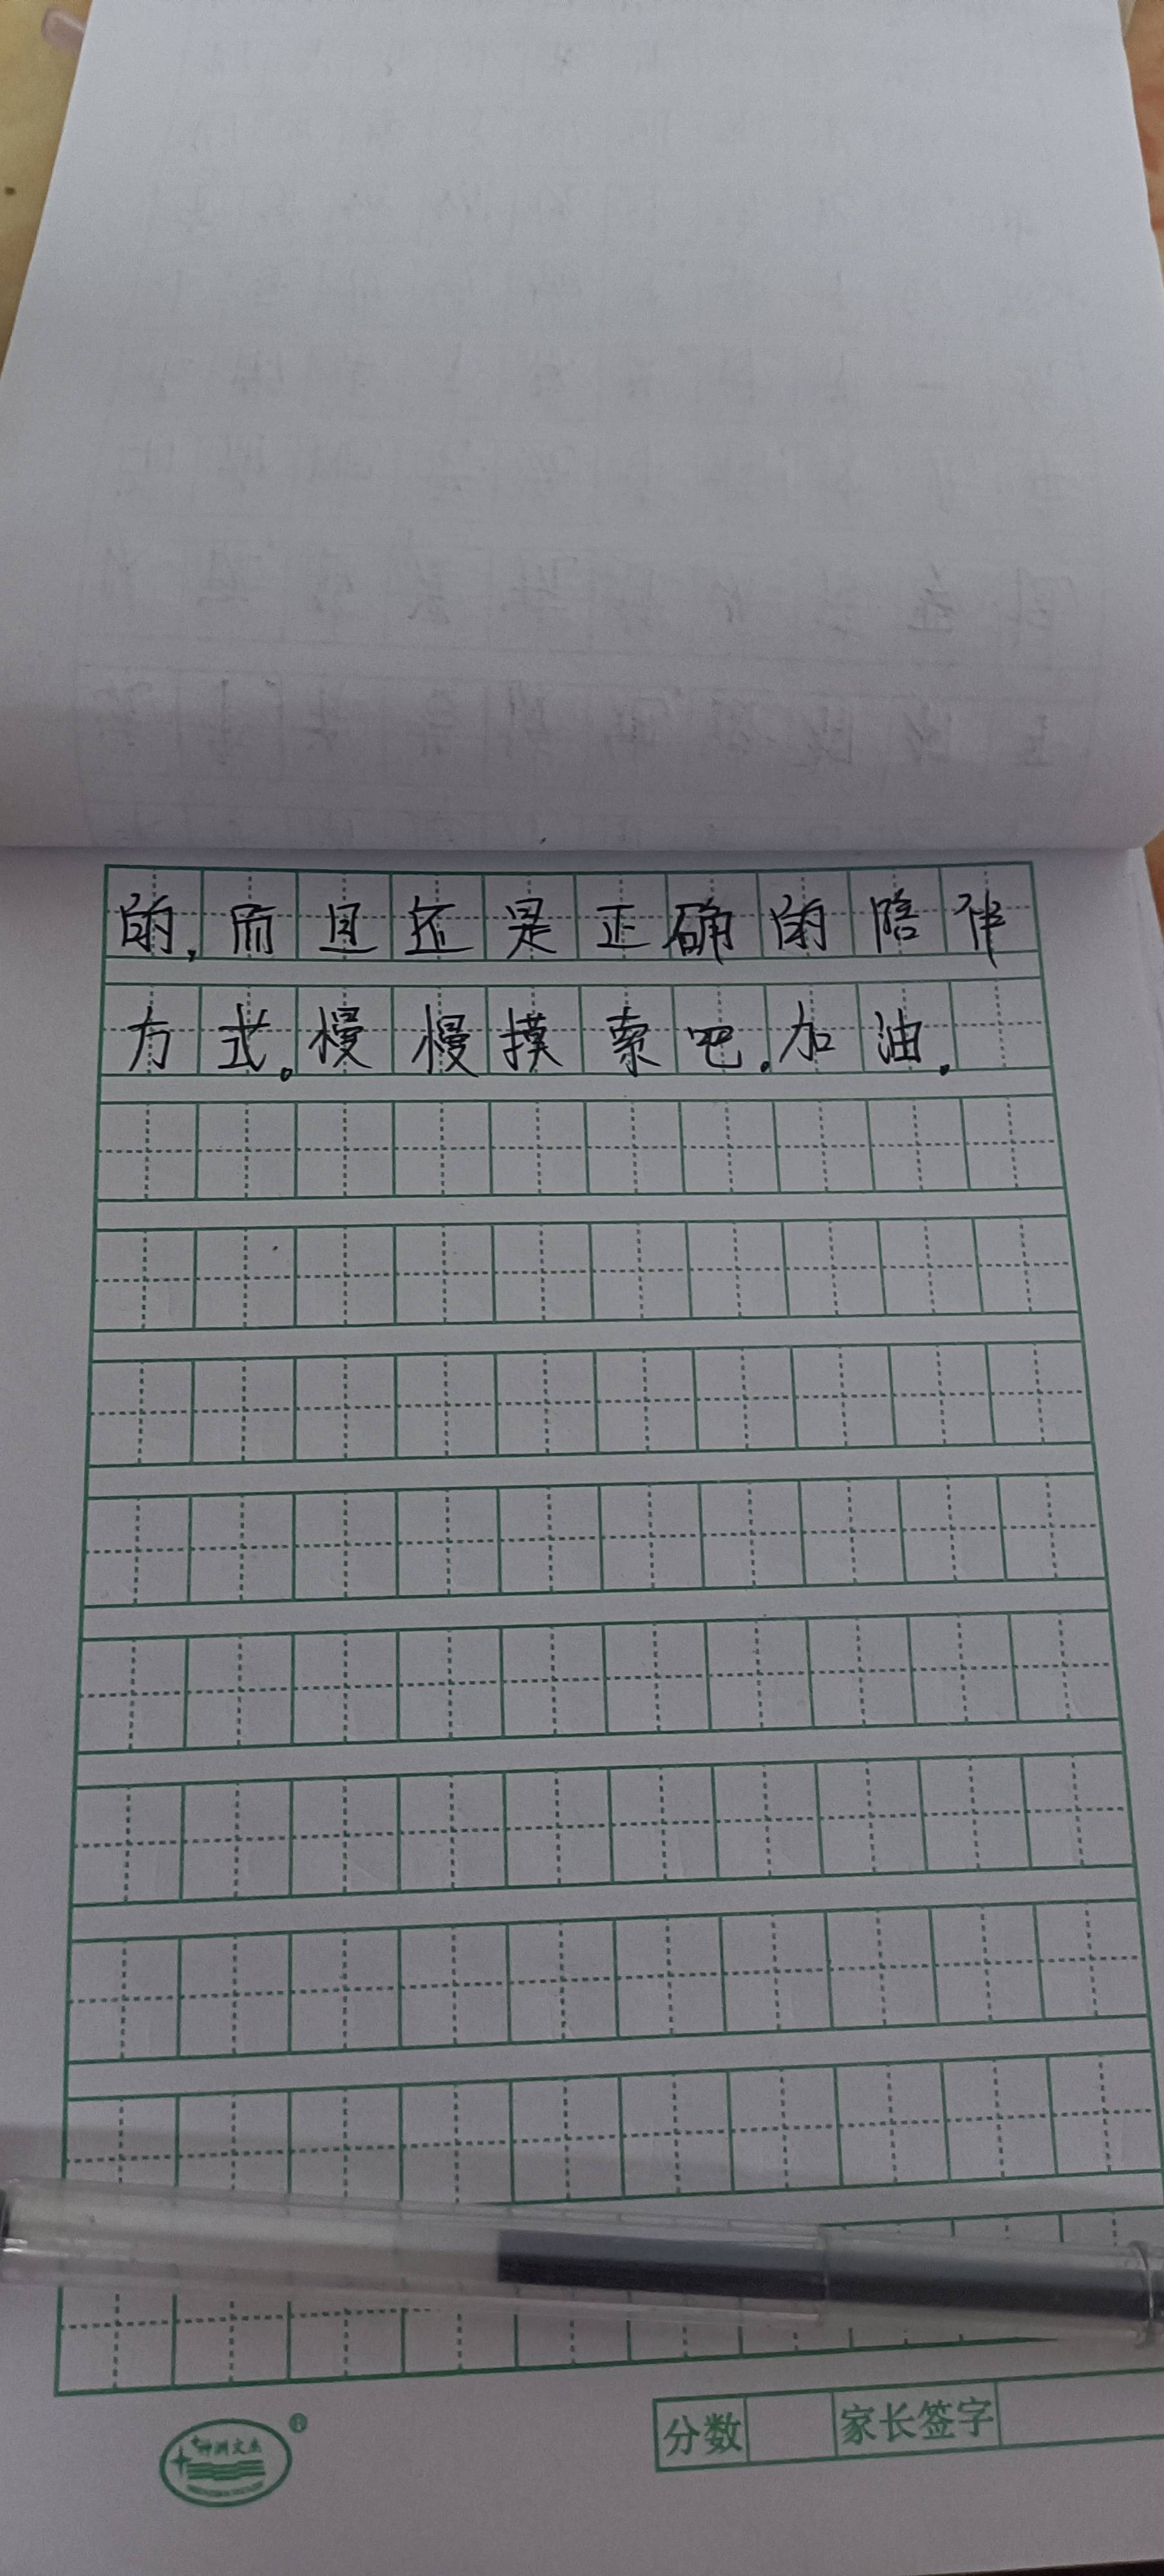 的,而且还是正确的陪伴
方式。慢慢摸索吧.加油.
神洲文具
®
分数
家长签字